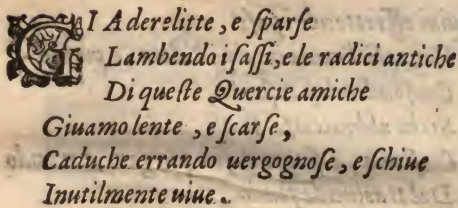 GIA derelitte, e sparse
Lambendo i sassi, e le radici antiche
Di queste Quercie amiche
Giuamo lente, e scarse,
Caduche errando uergognose, e schiue
Inutilmente uiue.